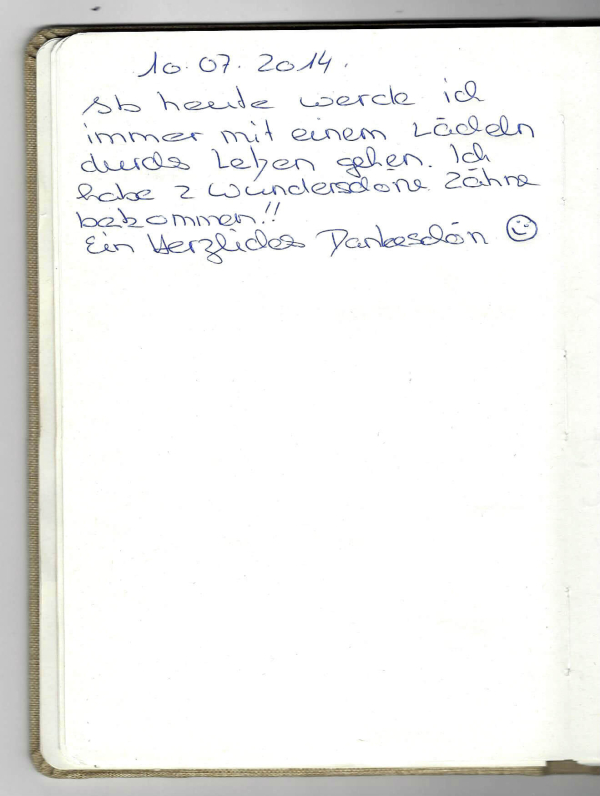 10.07.2014.
Ab heute werde ich
immer mit einem Lächeln
durchs Leben gehen. Ich
habe 2 Wunderschöne Zähne
bekommen!!
Ein Herzliches Dankeschön ☺